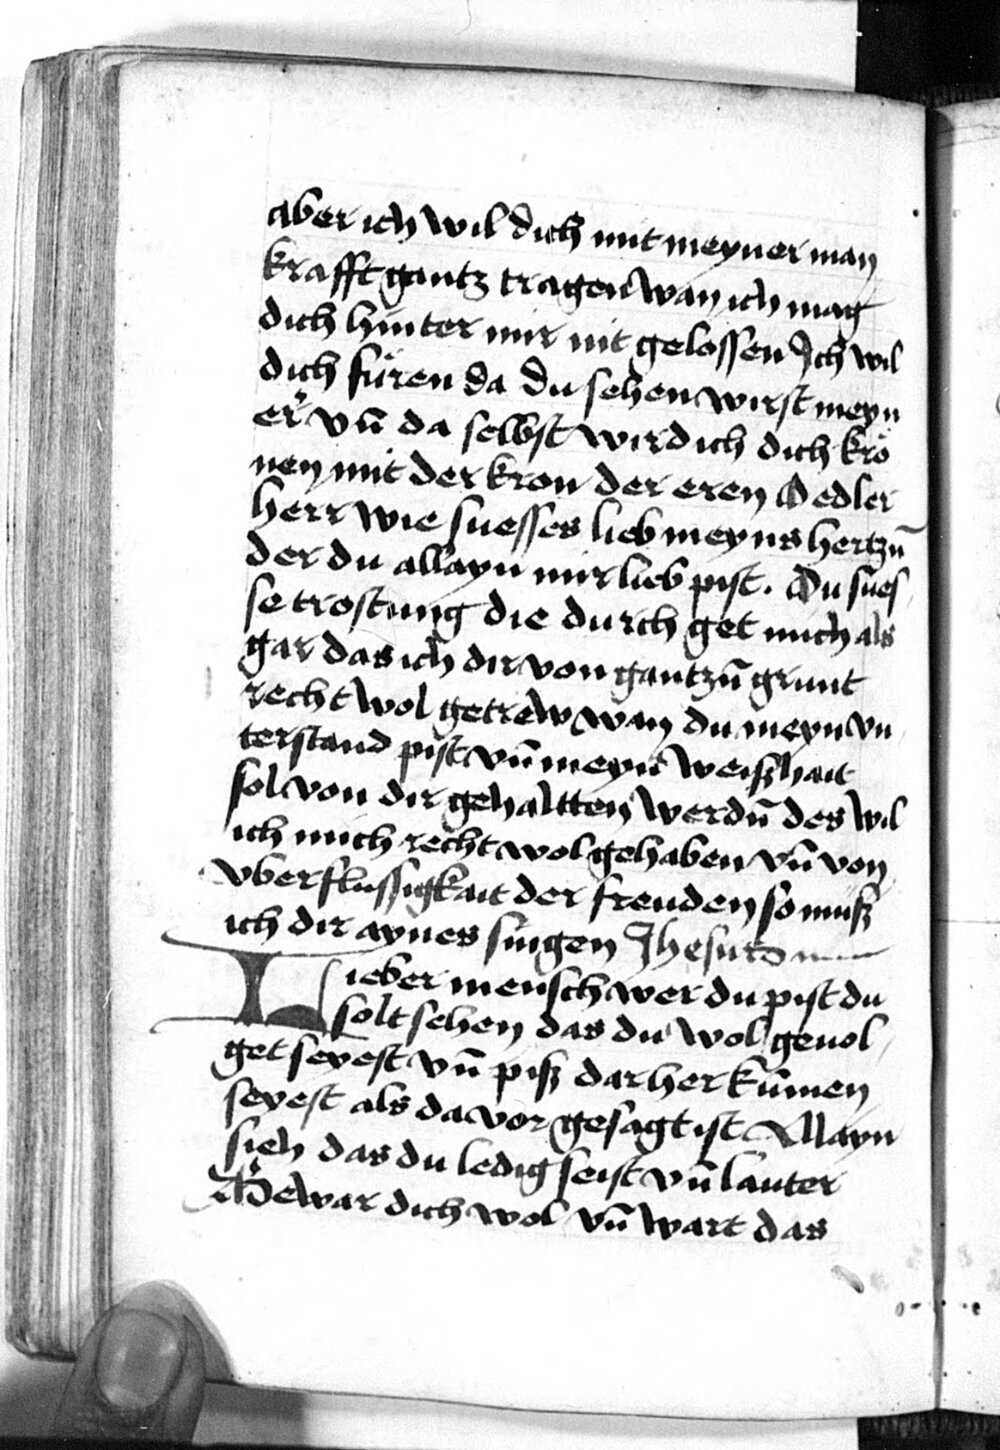 aber ich wil dich mit meyner man
krafft gantz tragen wan ich mag
dich hinter mir nit gelossen Ich wil
dich füren da du sehen wirst meyn
er vn̄ da selbst wird ich dich krö
nen mit der kron der eren O edler
herr wie suesses lieb meyns hertzn̄
der du allayn mir lieb pist. Du sues
se trostung die durch get mich als
gar das ich dir von gantzn̄ grunt
recht wol getrew wan du meyn vn
terstand pist vn̄ meyn weißhait
sol von dir gehaltten werdn̄ des wil
ich mich recht wol gehaben vn̄ von
vberflussigkait der freuden so muß
ich dir aynes singen Jhesu
Lieber mensch wer du pist du
solt sehen das du wol geuol
get seyest vn̄ piß dar her kūmen
seyest als da vor gesagt ist Allayn
sieh das du ledig seist vn̄ lauter
Bewar dich wol vn̄ wart das